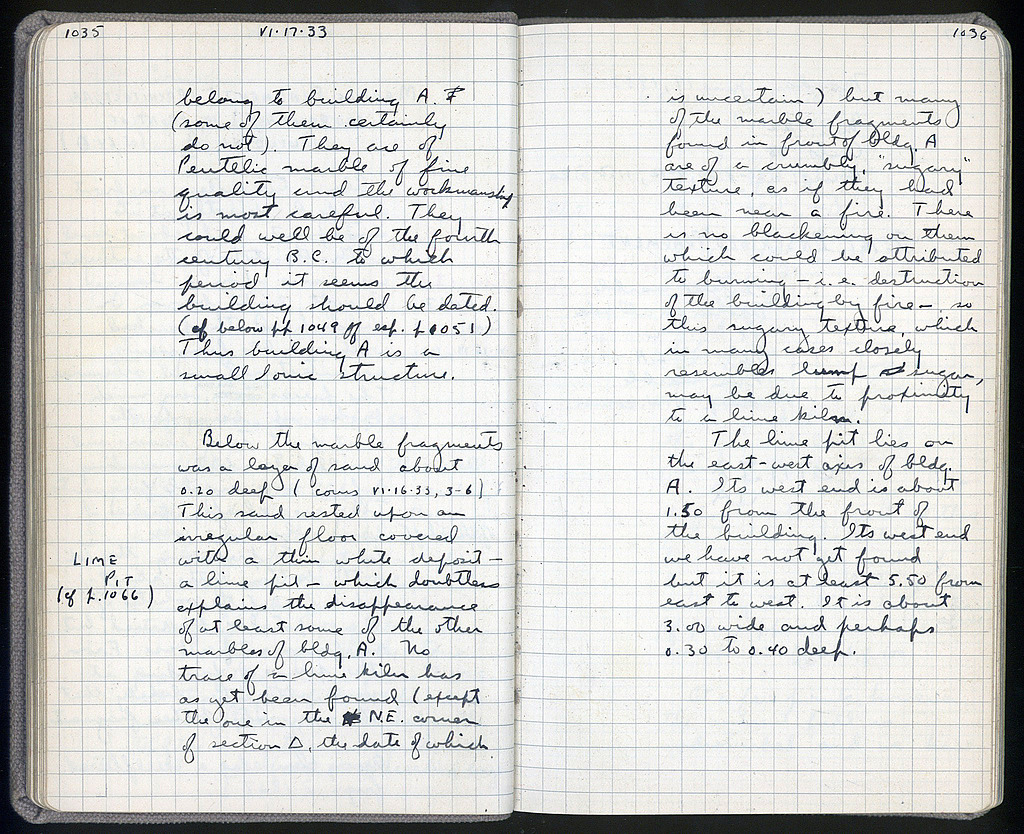 1035
VI·17·33
belong to building A.
(some of them certainly
do not). They are of
Pentelic marble of fine
quality and the workmanship
is most careful. They
could well be of the fourth
century B.C. to which
period it seems the
building should be dated.
(cf below pp 1049 ff esp. p 1051)
Thus building A is a
small Ionic structure.
Below the marble fragments
was a layer of sand about
0.20 deep (coins VI·16·33, 3-6)
This sand rested upon an
irregular floor covered
with a thin white deposit —
a lime pit — which doubtless
explains the disappearance
of at least some of the other
marbles of bldg. A. No
trace of a lime kiln has
as yet been found (except
the one in the N.E. corner
of section Δ, the date of which
LIME
PIT
(cf p. 1066)
1036
is uncertain) but many
of the marble fragments
found in front of bldg. A
are of a crumbly, "sugary"
texture, as if they had
been near a fire. There
is no blackening on them
which could be attributed
to burning — i.e. destruction
of the building by fire — so
this sugary texture, which
in many cases closely
resembles lump sugar,
may be due to proximity
to a lime kiln.
The lime pit lies on
the east-west axis of bldg.
A. Its west end is about
1.50 from the front of
the building. Its west end
we have not yet found
but it is at least 5.50 from
east to west. It is about
3.00 wide and perhaps
0.30 to 0.40 deep.